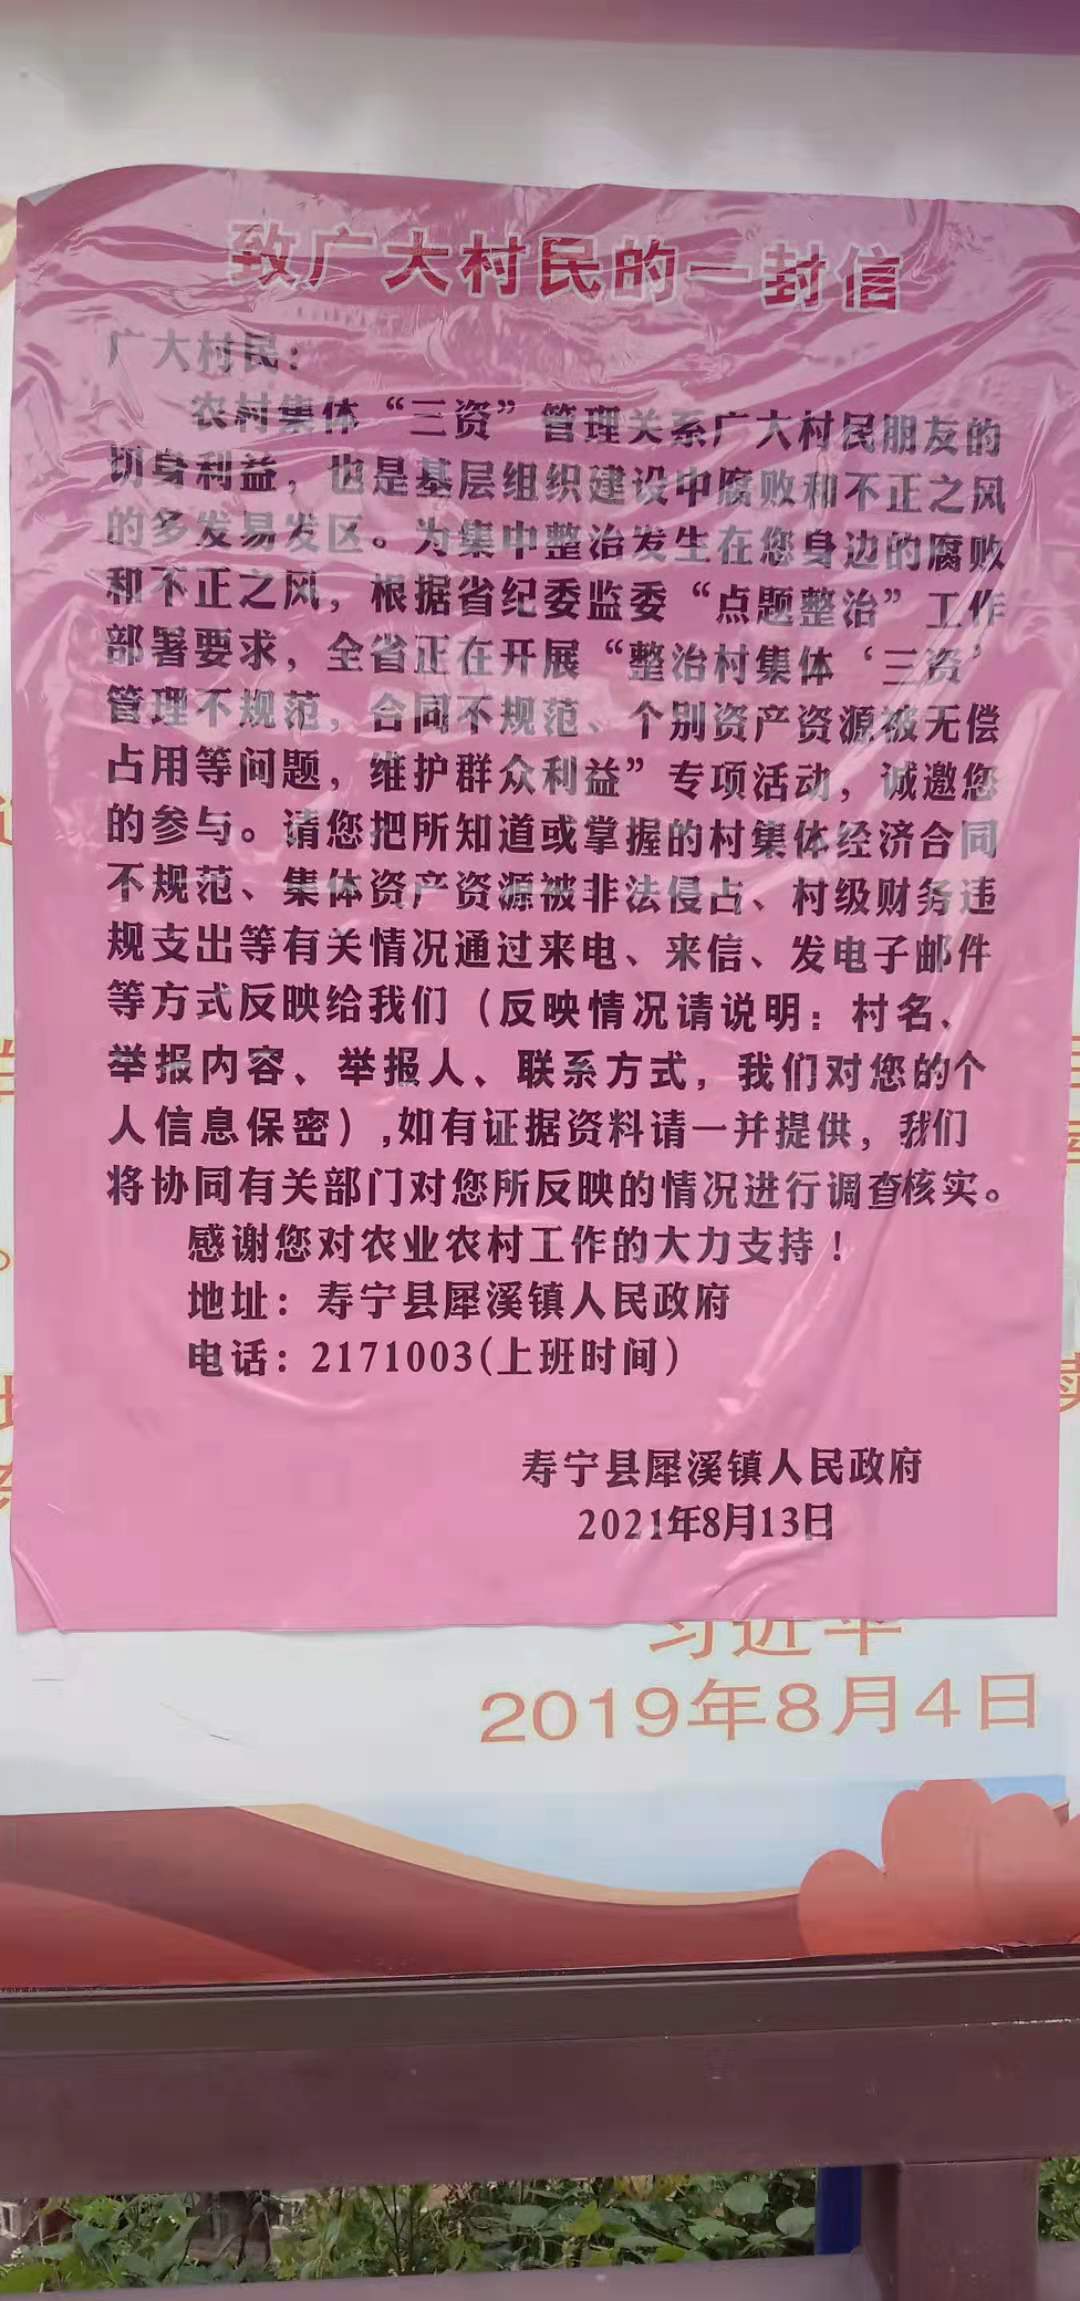 致广大村民的一封信
广大村民：
农村集体“三资”管理关系广大村民朋友的
切身利益，也是基层组织建设中腐败和不正之风
的多发易发区。为集中整治发生在您身边的腐败
和不正之风，根据省纪委监委“点题整治”工作
部署要求，全省正在开展“整治村集体‘三资’
管理不规范，合同不规范、个别资产资源被无偿
占用等问题，维护群众利益”专项活动，诚邀您
的参与。请您把所知道或掌握的村集体经济合同
不规范、集体资产资源被非法侵占、村级财务违
规支出等有关情况通过来电、来信、发电子邮件
等方式反映给我们（反映情况请说明：村名、
举报内容、举报人、联系方式，我们对您的个
人信息保密）,如有证据资料请一并提供，我们
将协同有关部门对您所反映的情况进行调查核实。
感谢您对农业农村工作的大力支持！
地址：寿宁县犀溪镇人民政府
电话：2171003(上班时间)
寿宁县犀溪镇人民政府
2021年8月13日
习近平
2019年8月4日